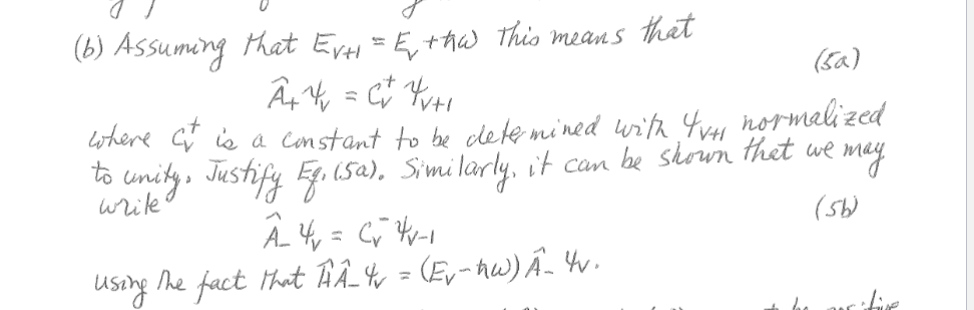 (b) Assuming that E_{v+1} = E_v + ħω this means that
Â₊ψ_v = C_v⁺ ψ_{v+1} (5a)
where C_v⁺ is a constant to be determined with ψ_{v+1} normalized
to unity. Justify Eq. (5a). Similarly, it can be shown that we may
write
Â₋ψ_v = C_v⁻ ψ_{v-1} (5b)
using the fact that ĤÂ₋ψ_v = (E_v - ħω)Â₋ψ_v.